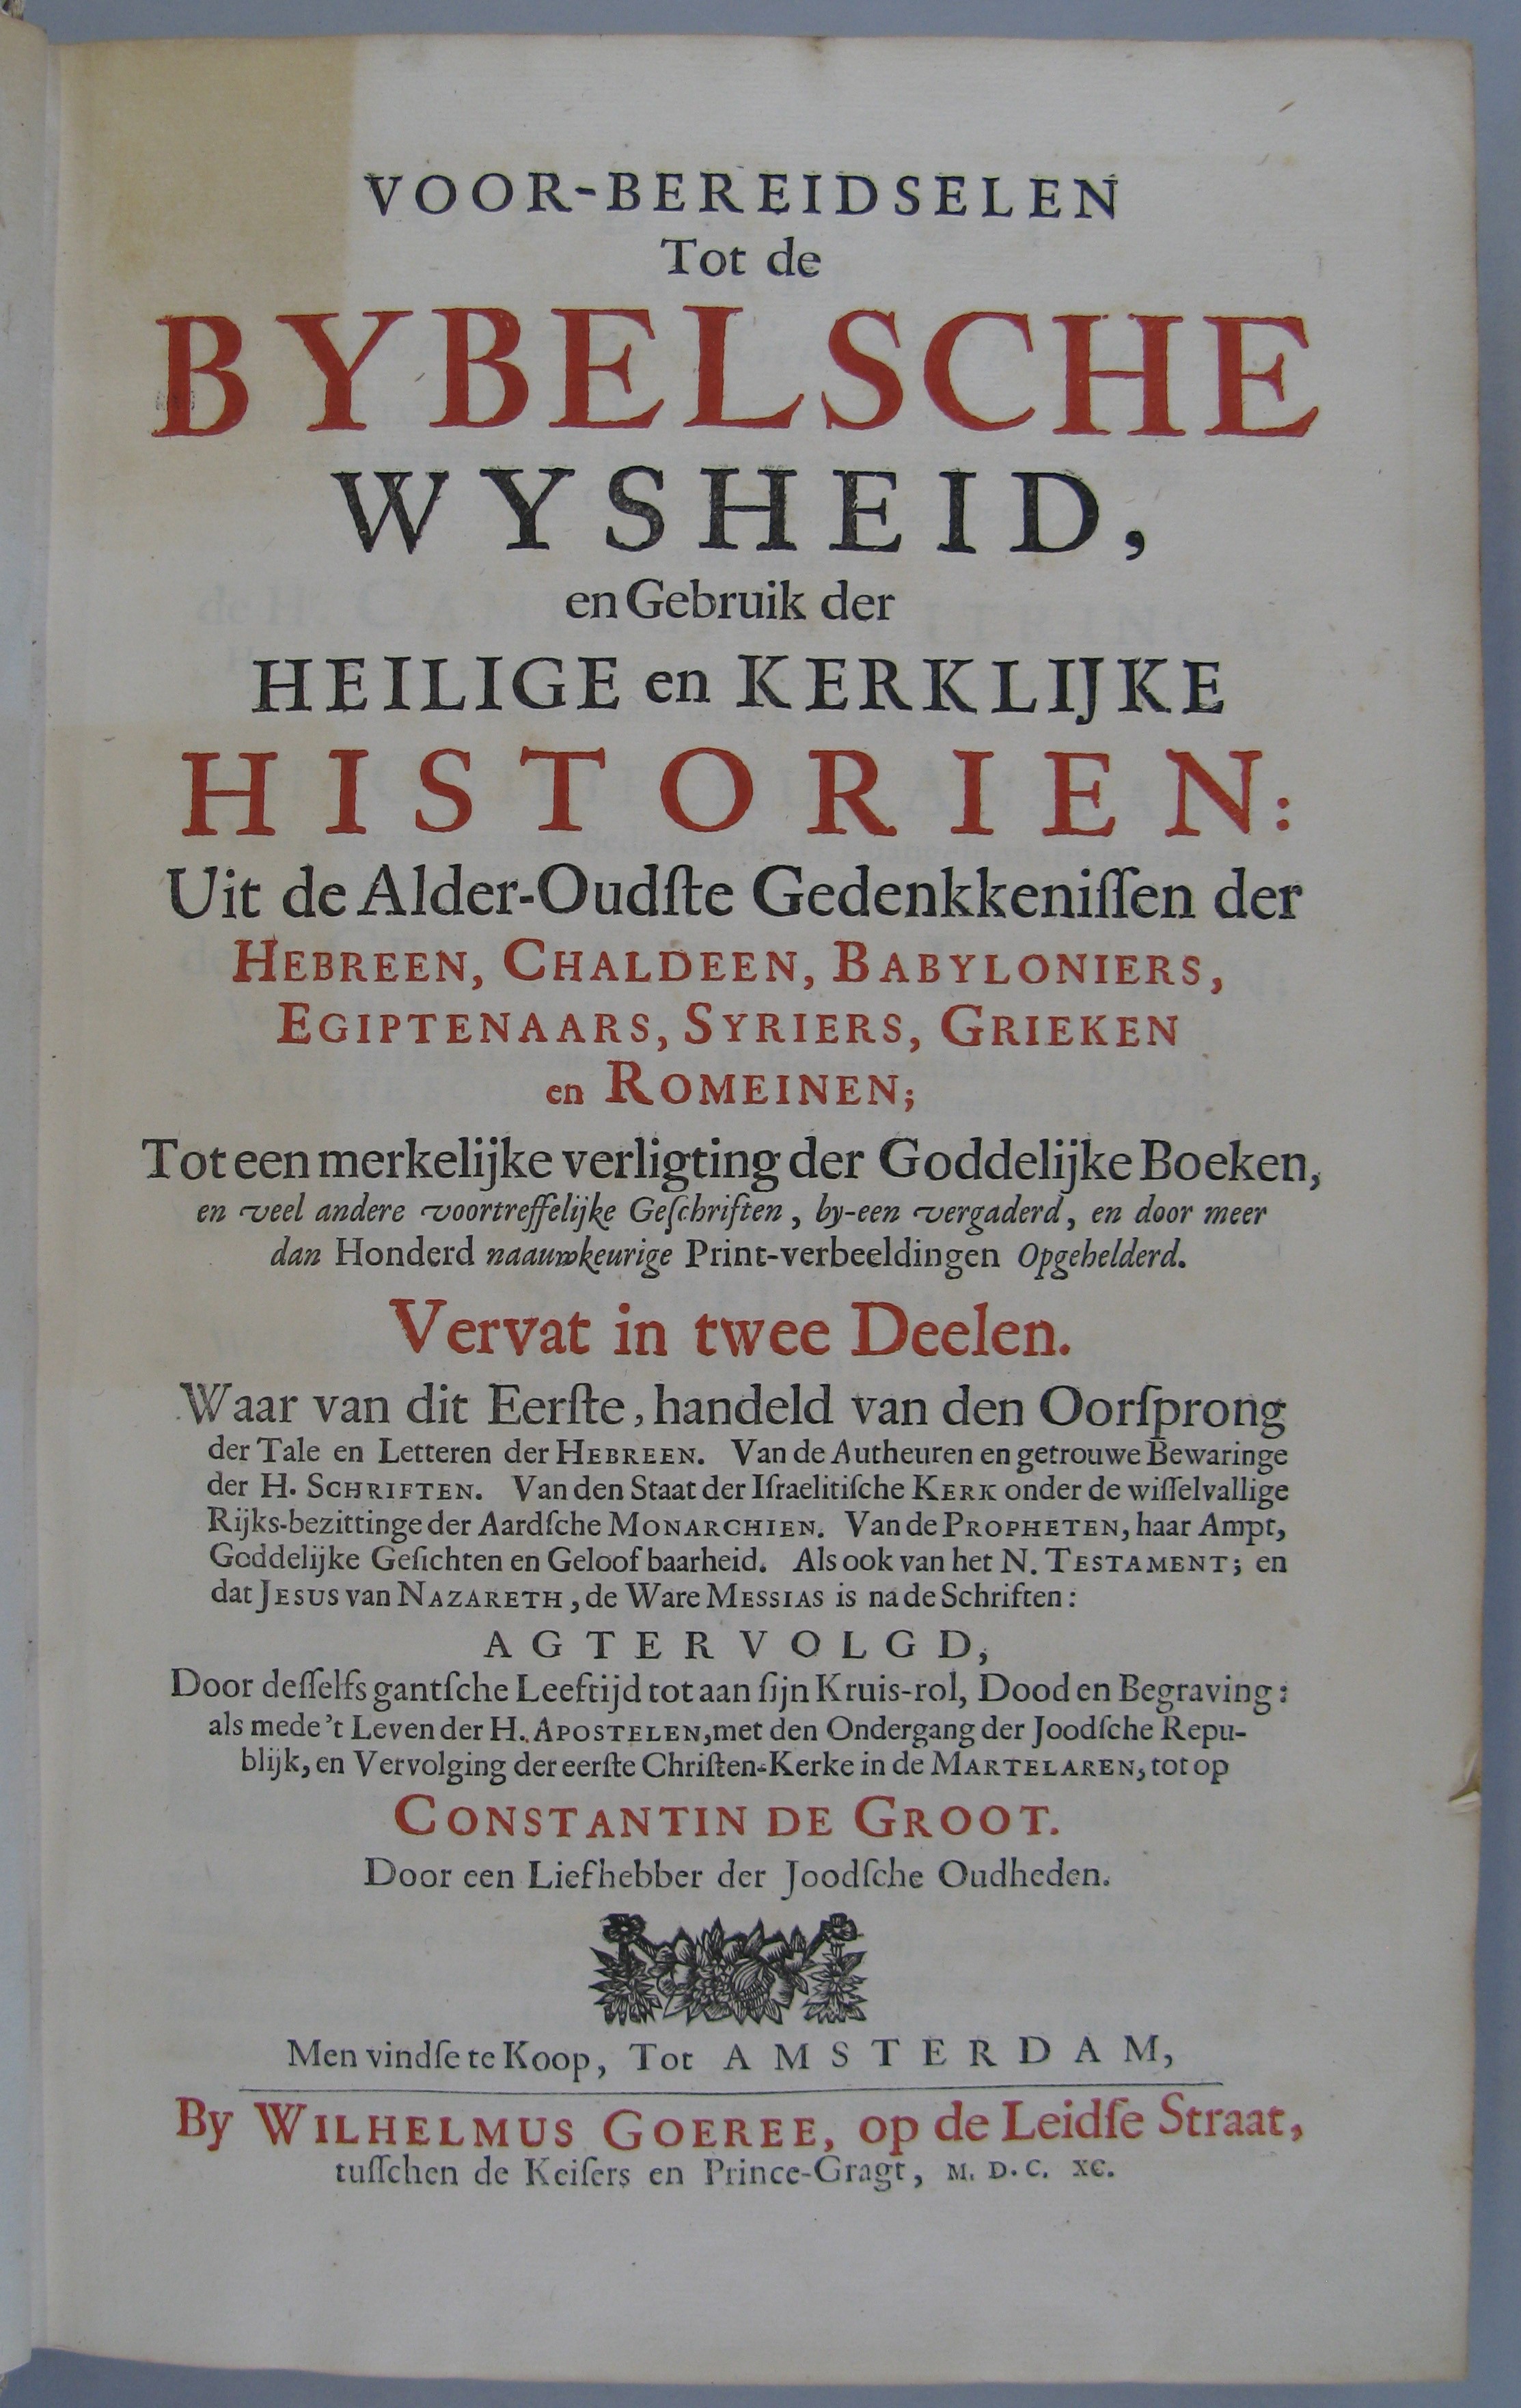 VOOR-BEREIDSELEN
Tot de
BYBELSCHE
WYSHEID,
en Gebruik der
HEILIGE en KERKLIJKE
HISTORIEN:
Uit de Alder-Oudſte Gedenkkeniſſen der
HEBREEN, CHALDEEN, BABYLONIERS,
EGIPTENAARS, SYRIERS, GRIEKEN
en ROMEINEN;
Tot een merkelijke verligting der Goddelijke Boeken,
en veel andere voortreffelijke Geſchriften, by-een vergaderd, en door meer
dan Honderd naauwkeurige Print-verbeeldingen Opgehelderd.
Vervat in twee Deelen.
Waar van dit Eerſte, handeld van den Oorſprong
der Tale en Letteren der HEBREEN. Van de Autheuren en getrouwe Bewaringe
der H. SCHRIFTEN. Van den Staat der Iſraelitiſche KERK onder de wiſſelvallige
Rijks-bezittinge der Aardſche MONARCHIEN. Van de PROPHETEN, haar Ampt,
Goddelijke Geſichten en Geloofbaarheid. Als ook van het N. TESTAMENT; en
dat JESUS van NAZARETH, de Ware MESSIAS is na de Schriften:
AGTERVOLGD,
Door deſſelfs gantſche Leeftijd tot aan ſijn Kruis-rol, Dood en Begraving:
als mede 't Leven der H. APOSTELEN, met den Ondergang der Joodſche Repu-
blijk, en Vervolging der eerſte Chriſten-Kerke in de MARTELAREN, tot op
CONSTANTIN DE GROOT.
Door een Liefhebber der Joodſche Oudheden.
Men vindſe te Koop, Tot AMSTERDAM,
By WILHELMUS GOEREE, op de Leidſe Straat,
tuſſchen de Keiſers en Prince-Gragt, M. D. C. XC.